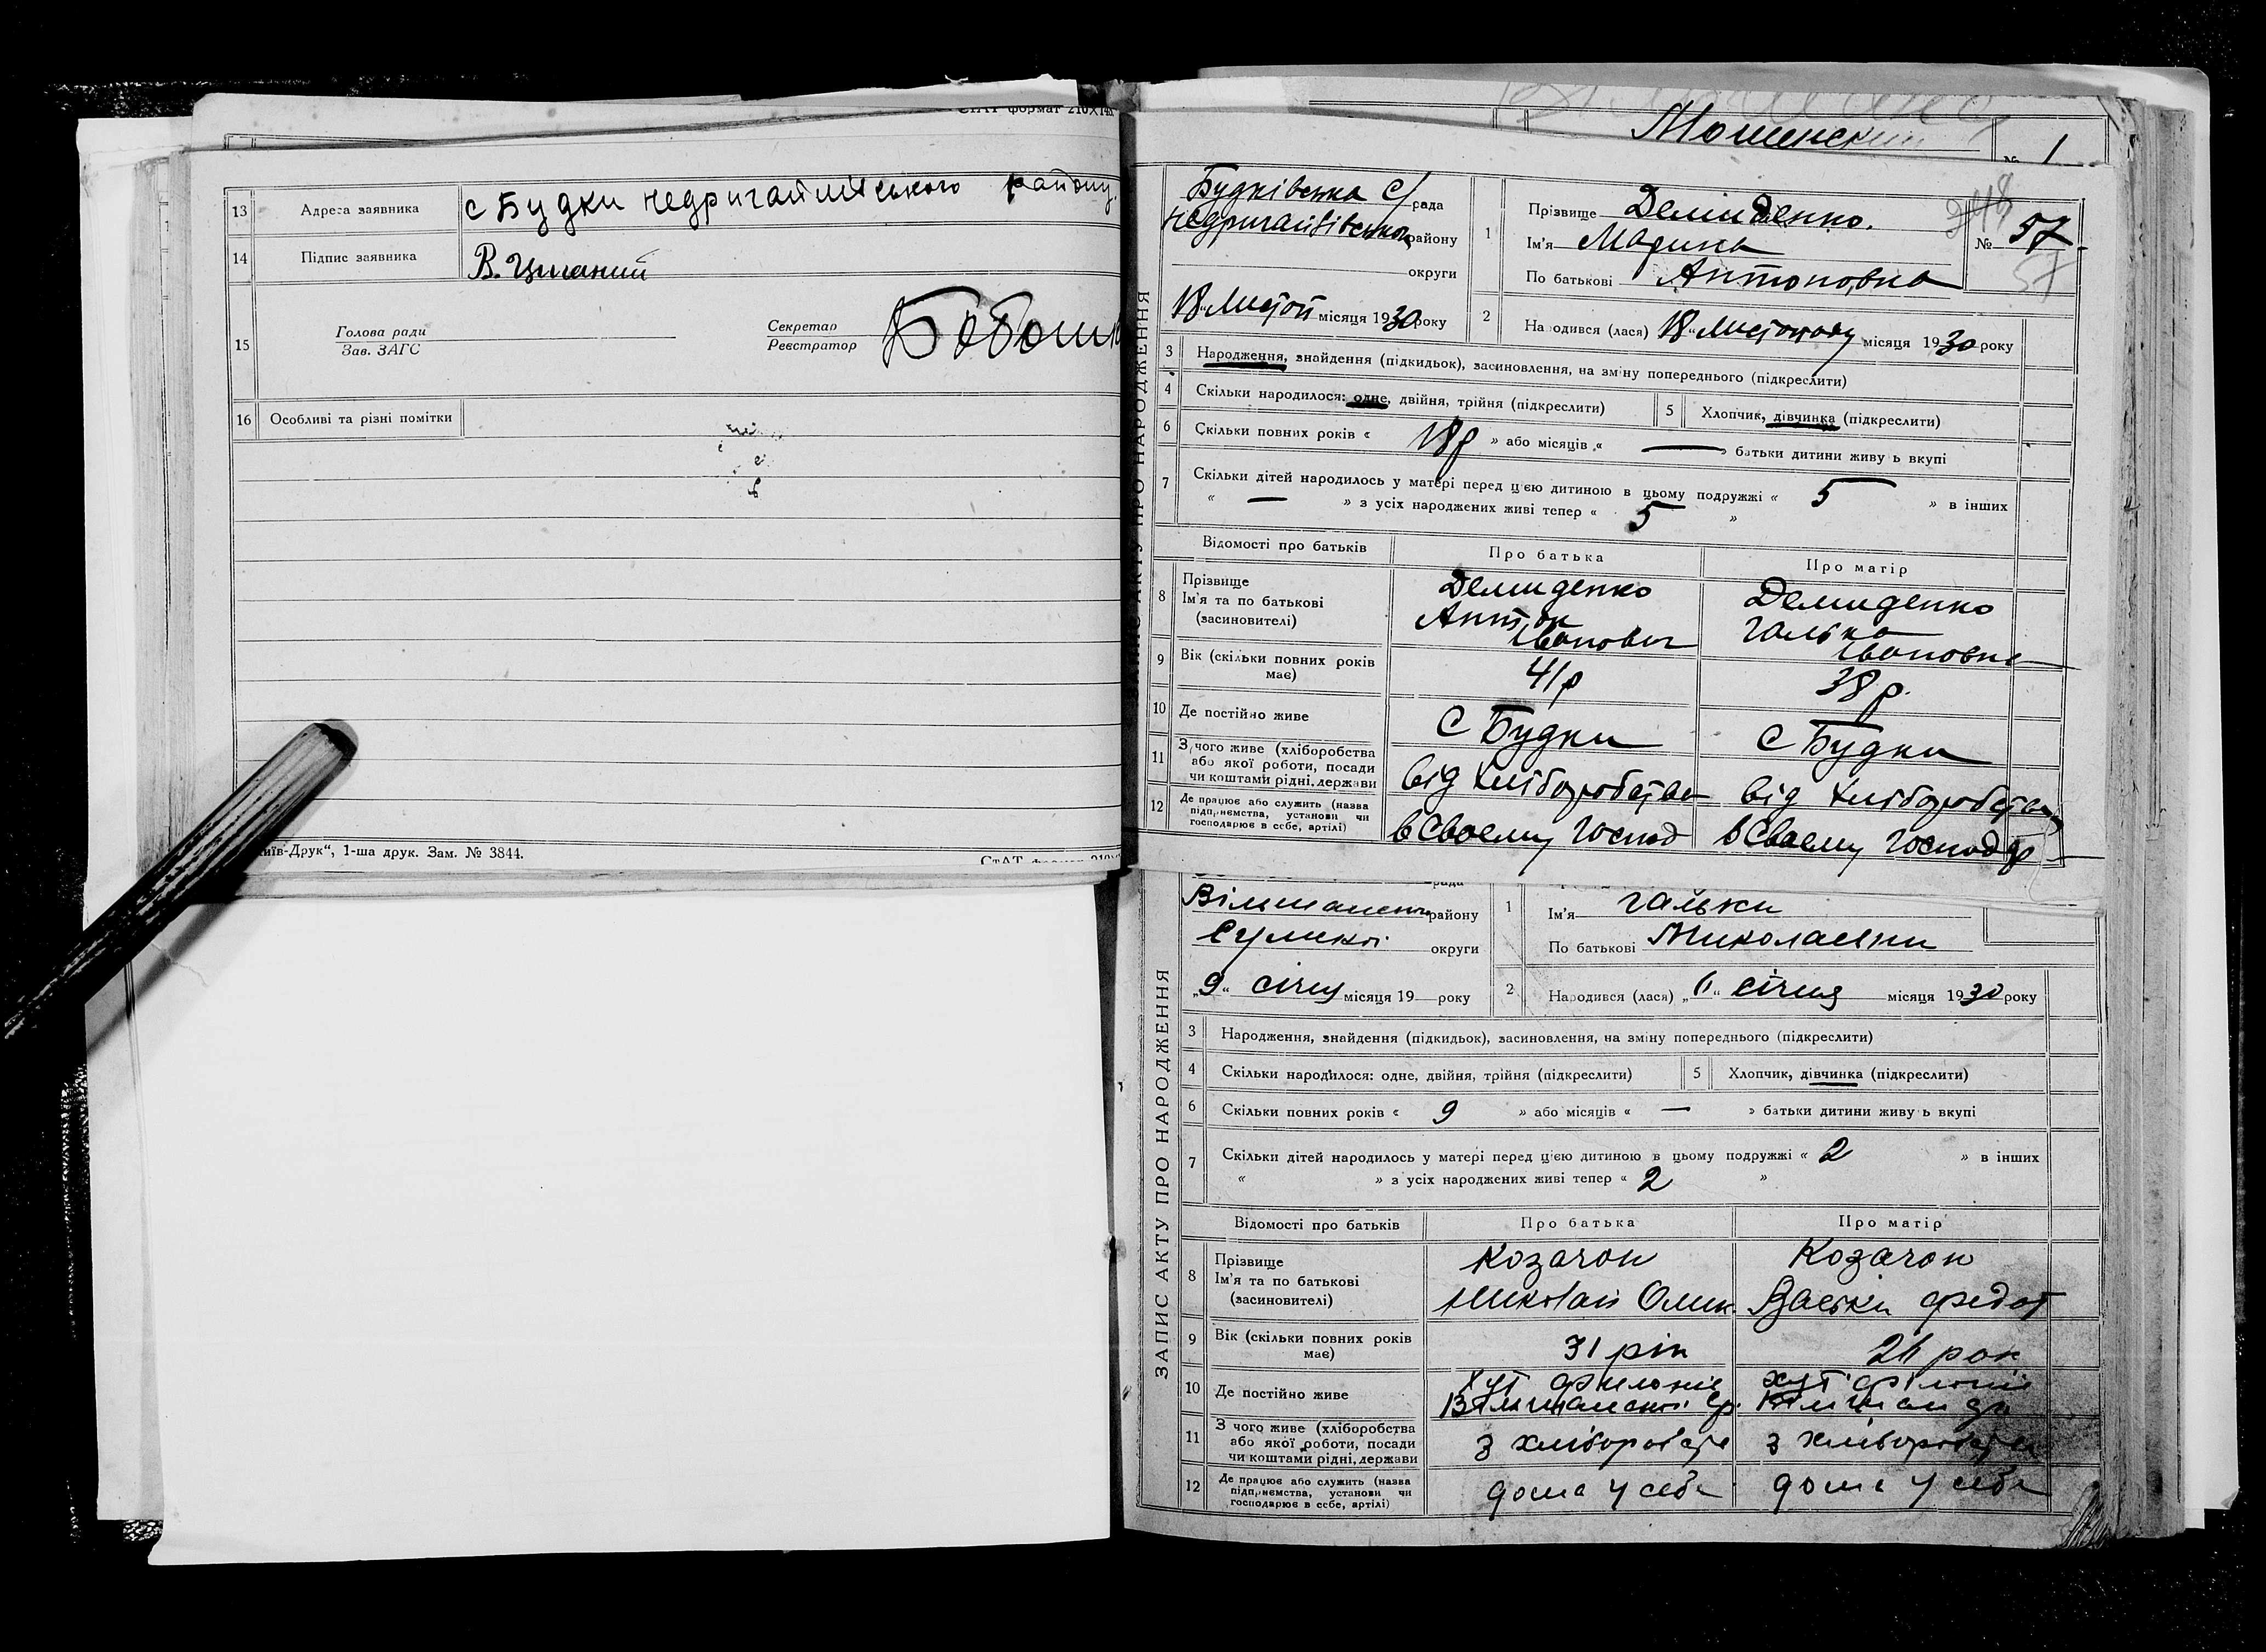 СтАТ формат 210×
13 Адреса заявника с Будки недригайлівського району.
14 Підпис заявника В. Циганий
15 Голова ради
Зав. ЗАГС
Секретар
Реєстратор
16 Особливі та різні помітки
Друк“, 1-ша друк. Зам. № 3844.
СтАТ формат 210×
№ 1
ЗАПИС АКТУ ПРО НАРОДЖЕННЯ
Будківська С/ рада
району
округи
18 Листоп місяця 1930 року
1 Прізвище Демиденко.
Ім'я Марина
По батькові Антоновна
№ 57
57
2 Народився (лася) 18 “ Листопаду місяця 1930 року
3 Народження, знайдення (підкидьок), засиновлення, на зміну попереднього (підкреслити)
4 Скільки народилося: одне, двійня, трійня (підкреслити)
5 Хлопчик, дівчинка (підкреслити)
6 Скільки повних років « 18р » або місяців « — » батьки дитини живуть вкупі
7 Скільки дітей народилось у матері перед цією дитиною в цьому подружжі « 5 » в інших
« — » з усіх народжених живі тепер « 5 »
Відомості про батьків Про батька Про матір
8 Прізвище
Ім'я та по батькові
(засновителі)
Демиденко
Антон
Іванович
Демиденко
Галька
Івановна
9 Вік (скільки повних років має) 41р 38 р.
10 Де постійно живе С Будки С Будки
11 З чого живе (хліборобства
або якої роботи, посади
чи коштами рідні, держави
від хліборобства від хліборобства
12 Де працює або служить (назва
підприємства, установи чи
господарює в себе, артілі)
в Своему Господ в Своему Господар
ЗАПИС АКТУ ПРО НАРОДЖЕННЯ
рада
району
округи
„9“ січня місяця 19 — року
1 Ім'я Гальки
По батькові Миколаевни
2 Народився (лася) січня місяця 1930 року
3 Народження, знайдення (підкидьок), засиновлення, на зміну попереднього (підкреслити)
4 Скільки народилося: одне, двійня, трійня (підкреслити)
5 Хлопчик, дівчинка (підкреслити)
6 Скільки повних років « 9 » або місяців « — » батьки дитини живуть вкупі
7 Скільки дітей народилось у матері перед цією дитиною в цьому подружжі « 2 » в інших
« » з усіх народжених живі тепер « 2 »
Відомості про батьків Про батька Про матір
8 Прізвище
Ім'я та по батькові
(засиновителі)
Козачок
Николай
Козачок
Федот
9 Вік (скільки повних років має) 31 рік рок
10 Де постійно живе хут хут
11 З чого живе (хліборобства
або якої роботи, посади
чи коштами рідні, держави
з хлібороб з
12 Де працює або служить (назва
підприємства, установи чи
господарює в себе, артілі)
дома у себе дома у себе